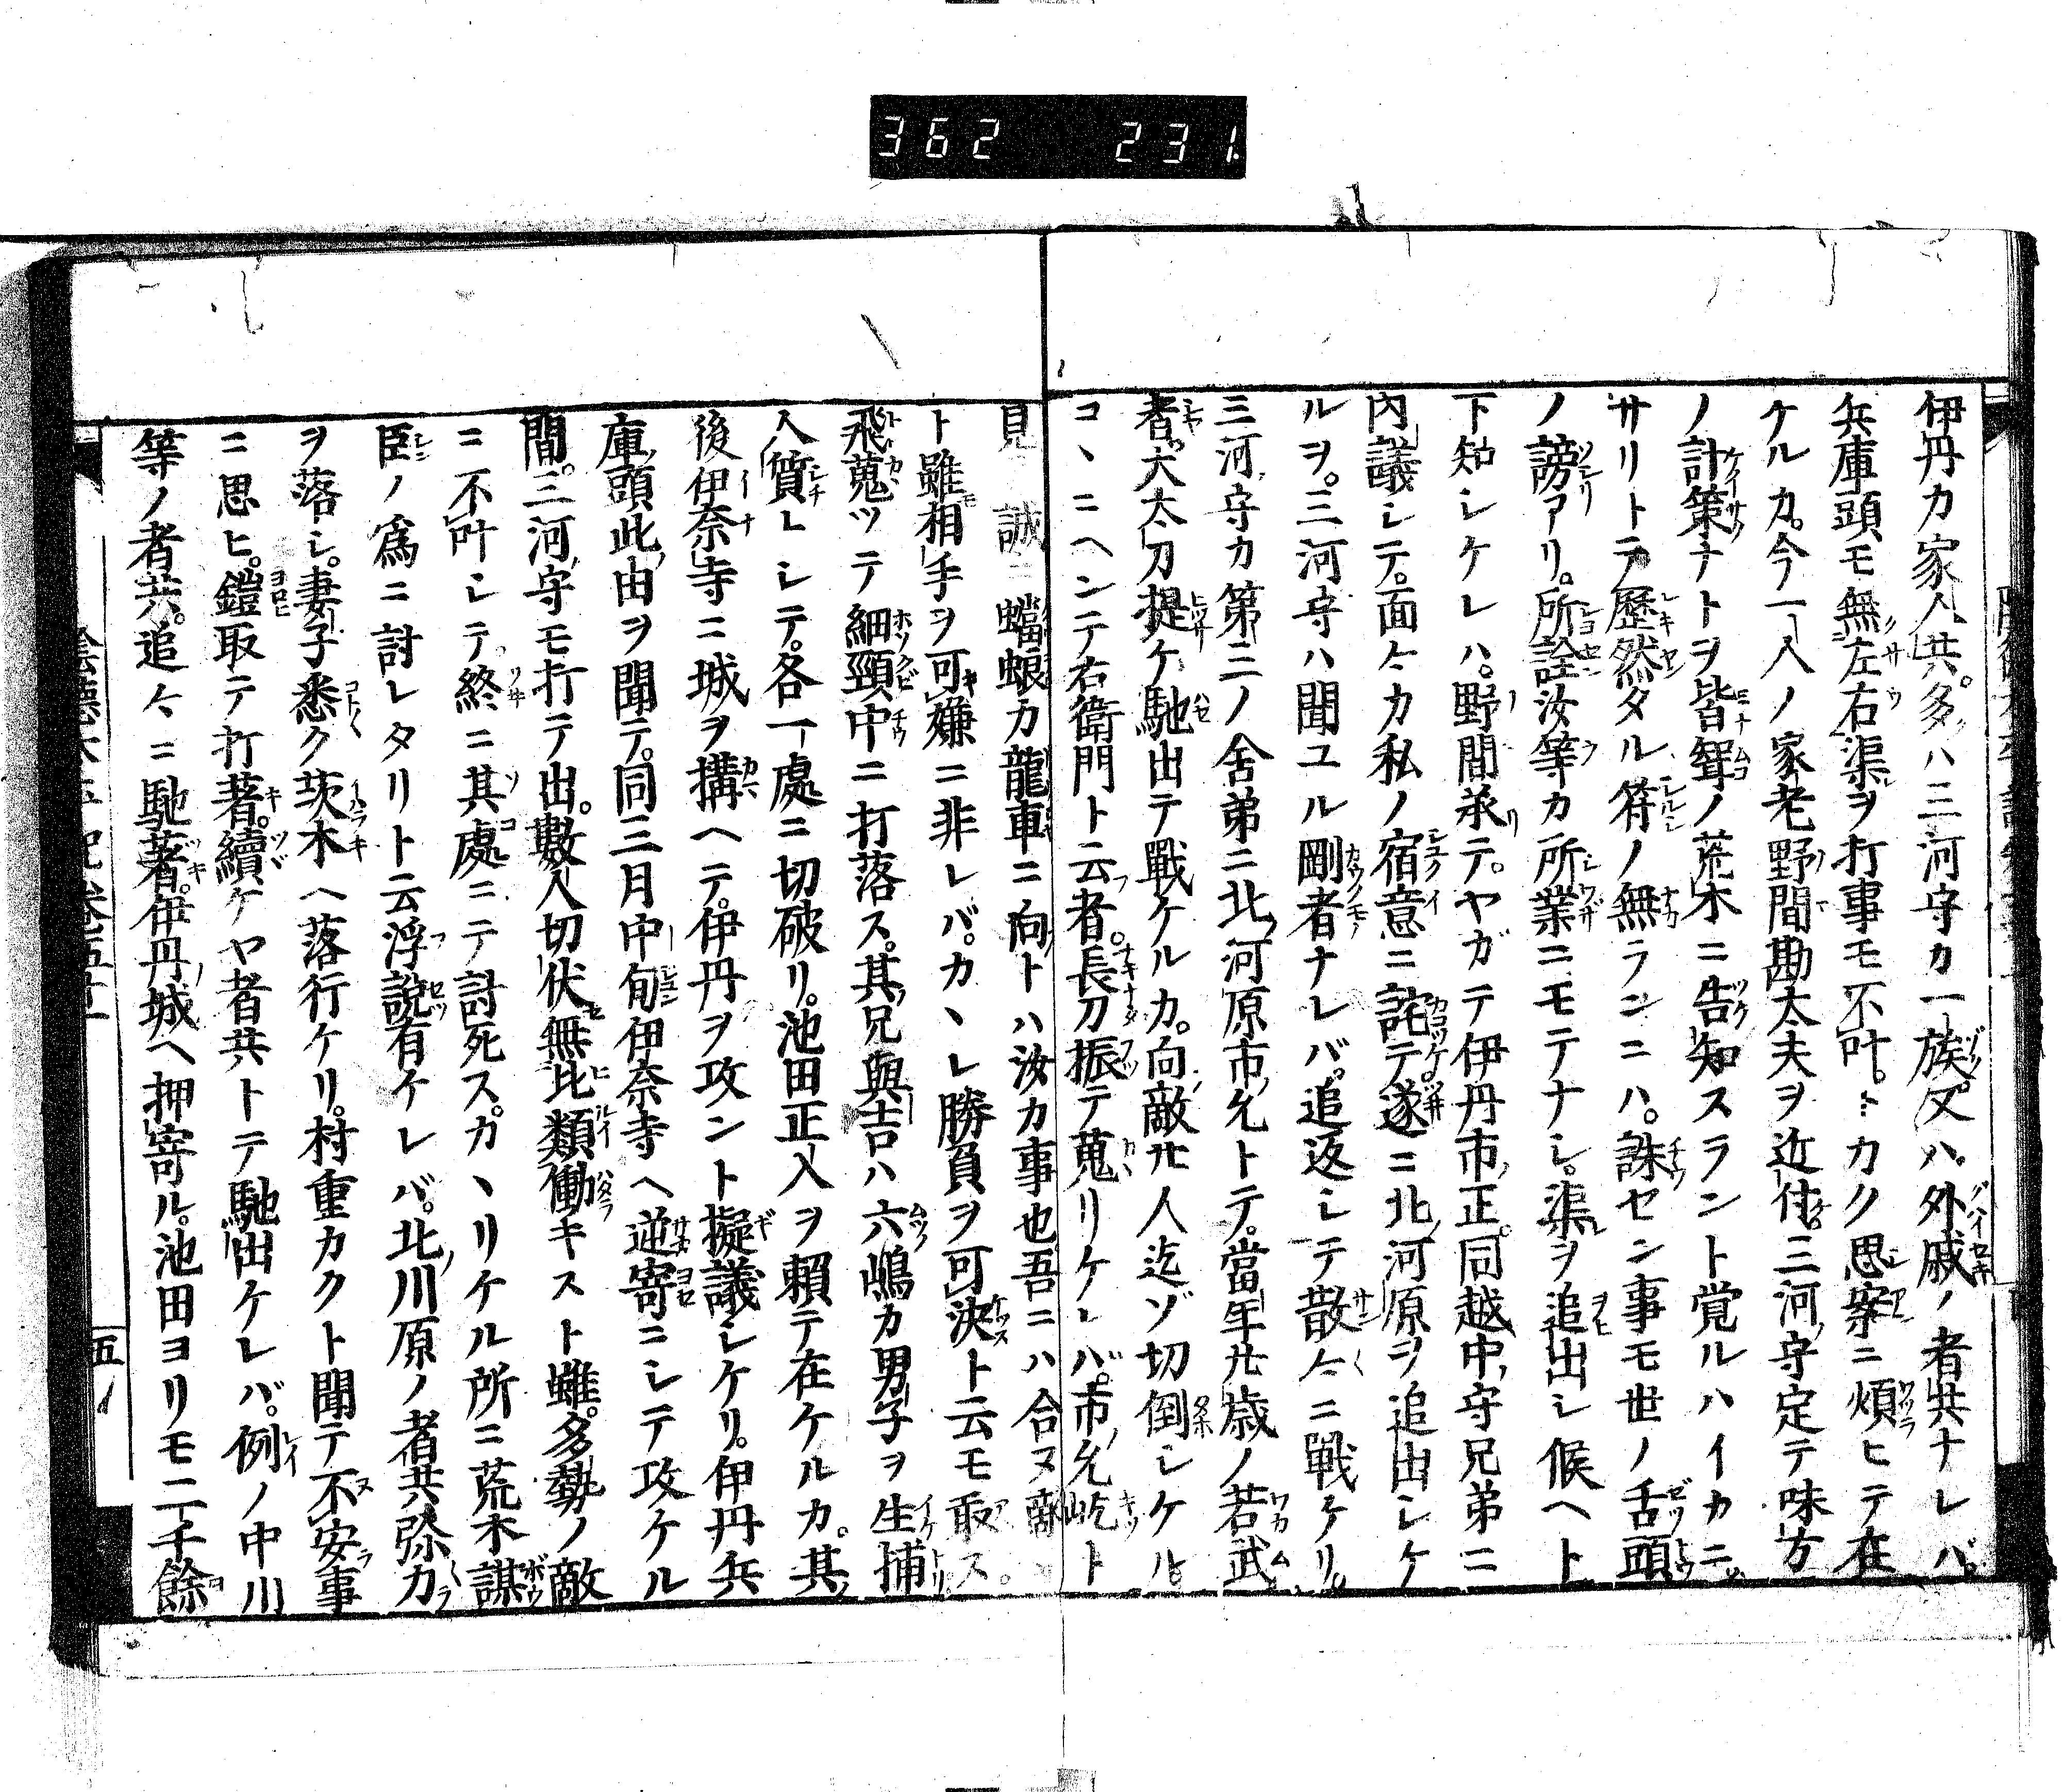 362 231
伊丹カ家人共。多ハ三河守カ一族又ハ。外戚ノ者共ナレバ。
兵庫頭モ無左右渠ヲ打事モ不叶。トカク思案ニ煩ヒテ在
ケルカ。今一人ノ家老野間勘大夫ヲ近付。三河守定テ味方
ノ計策ナトヲ皆聟ノ荒木ニ告知スラント覚ルハイカニ。
サリトテ歴然タル符ノ無ランニハ。誅セン事モ世ノ舌頭
ノ謗アリ。所詮汝等カ所業ニモテナシ。渠ヲ追出シ候ヘト
下知シケレハ。野間承テ。ヤガテ伊丹市正。同越中守兄弟ニ
内議シテ。面々カ私ノ宿意ニ詫テ。遂ニ北河原ヲ追出シケ
ルヲ。三河守ハ聞ユル剛者ナレバ。追返シテ散々ニ戦ケリ。
三河守カ第三ノ舎弟ニ北河原市允トテ。當年廿歳ノ若武
者。大太刀提ケ馳出テ戰ケルカ。向敵廿人迄ゾ切倒シケル
コヽニヘンテ右衛門ト云者。長刀振テ蒐リケレバ。市允屹ト
見 誠ニ蟷螂カ龍車ニ向トハ汝カ事也吾ニハ合ヌ敵
ト雖相手ヲ可嫌ニ非レバ。カヽレ勝負ヲ可決ト云モ敢ス。
飛蒐ツテ細頸中ニ打落ス。其兄與吉ハ六嶋カ男子ヲ生捕
人質トシテ。各一處ニ切破リ。池田正入ヲ頼テ在ケルカ。其
後伊奈寺ニ城ヲ搆ヘテ。伊丹ヲ攻ント擬議シケリ。伊丹兵
庫頭此由ヲ聞テ。同三月中旬伊奈寺ヘ逆寄ニシテ攻ケル
間。三河守モ打テ出。數人切伏無比類働キスト雖。多勢ノ敵
ニ不叶シテ終ニ其處ニテ討死ス。カヽリケル所ニ荒木謀
臣ノ爲ニ討レタリト云浮説有ケレバ。北川原ノ者共弥カ
ヲ落シ。妻子悉ク茨木ヘ落行ケリ。村重カクト聞テ不安事
ニ思ヒ。鎧取テ打著。續ケヤ者共トテ馳出ケレバ。例ノ中川
等ノ者共。追々ニ馳著。伊丹城ヘ押寄ル。池田ヨリモ二千餘
五